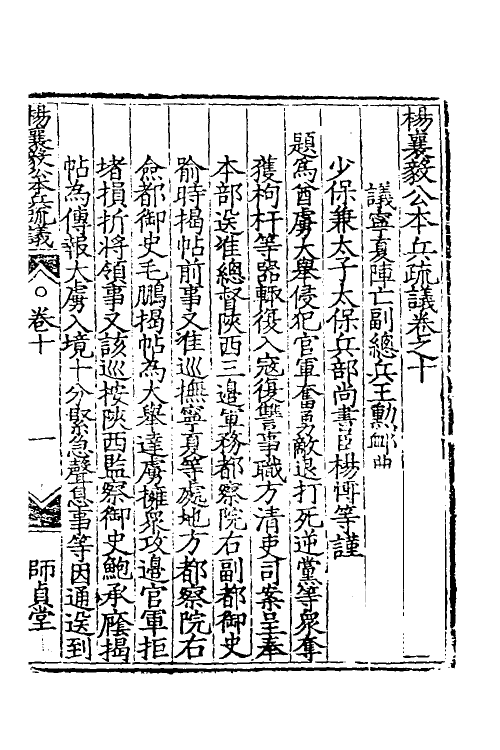 楊襄毅公本兵疏議卷之十
議寧夏陣亡副總兵王勲䘏典
少保兼太子太保兵部尚書臣楊博等謹
題爲酋虜大舉侵犯官軍奮勇敵退打死逆黨等衆奪
獲枸杆等器輙復入寇復讐事職方清吏司案呈奉
本部送准總督陜西三邊軍務都察院右副都御史
喻時揭帖前事又准巡撫寧夏等處地方都察院右
僉都御史毛鵬揭帖為大舉達虜擁衆攻邊官軍拒
堵損折將領事又該巡按陜西監察御史鮑承廕揭
帖為傳報大虜入境十分緊急聲息事等因通送到
楊襄毅公本兵疏議
卷十
一
師貞堂